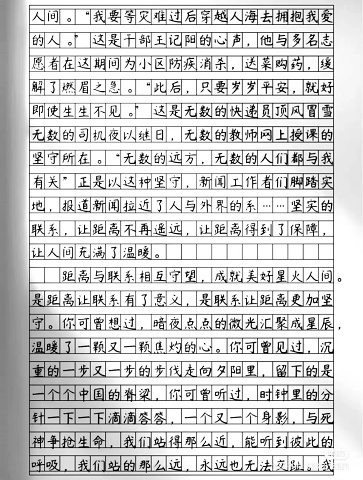 人间。“我要等灾难过后穿越人海去拥抱我爱
的人。”这是干部王记阳的心声，他与多名志
愿者在这期间为小区防疾消杀，送菜购药，缓
解了燃眉之急。“此后，只要岁岁平安，就好
即使生生不见。”这是无数的快递员顶风冒雪
无数的司机夜以继日，无数的教师网上授课的
坚守所在。“无数的远方，无数的人们都与我
有关”正是以这种坚守，新闻工作者们脚踏实
地，报道新闻拉近了人与外界的系……坚实的
联系，让距离不再遥远，让距离得到了保障，
让人间充满了温暖。
距离与联系相互守望，成就美好星火人间。
是距离让联系有了意义，是联系让距离更加坚
守。你可曾想过，暗夜点点的微光汇聚成星辰，
温暖了一颗又一颗焦灼的心。你可曾见过，沉
重的一步又一步的步伐走向夕阳里，留下的是
一个个中国的脊梁，你可曾听过，时钟里的分
针一下一下滴滴答答，一个又一个身影，与死
神争抢生命，我们站得那么近，能听到彼此的
呼吸，我们站的那么远，永远也无法交趾。我